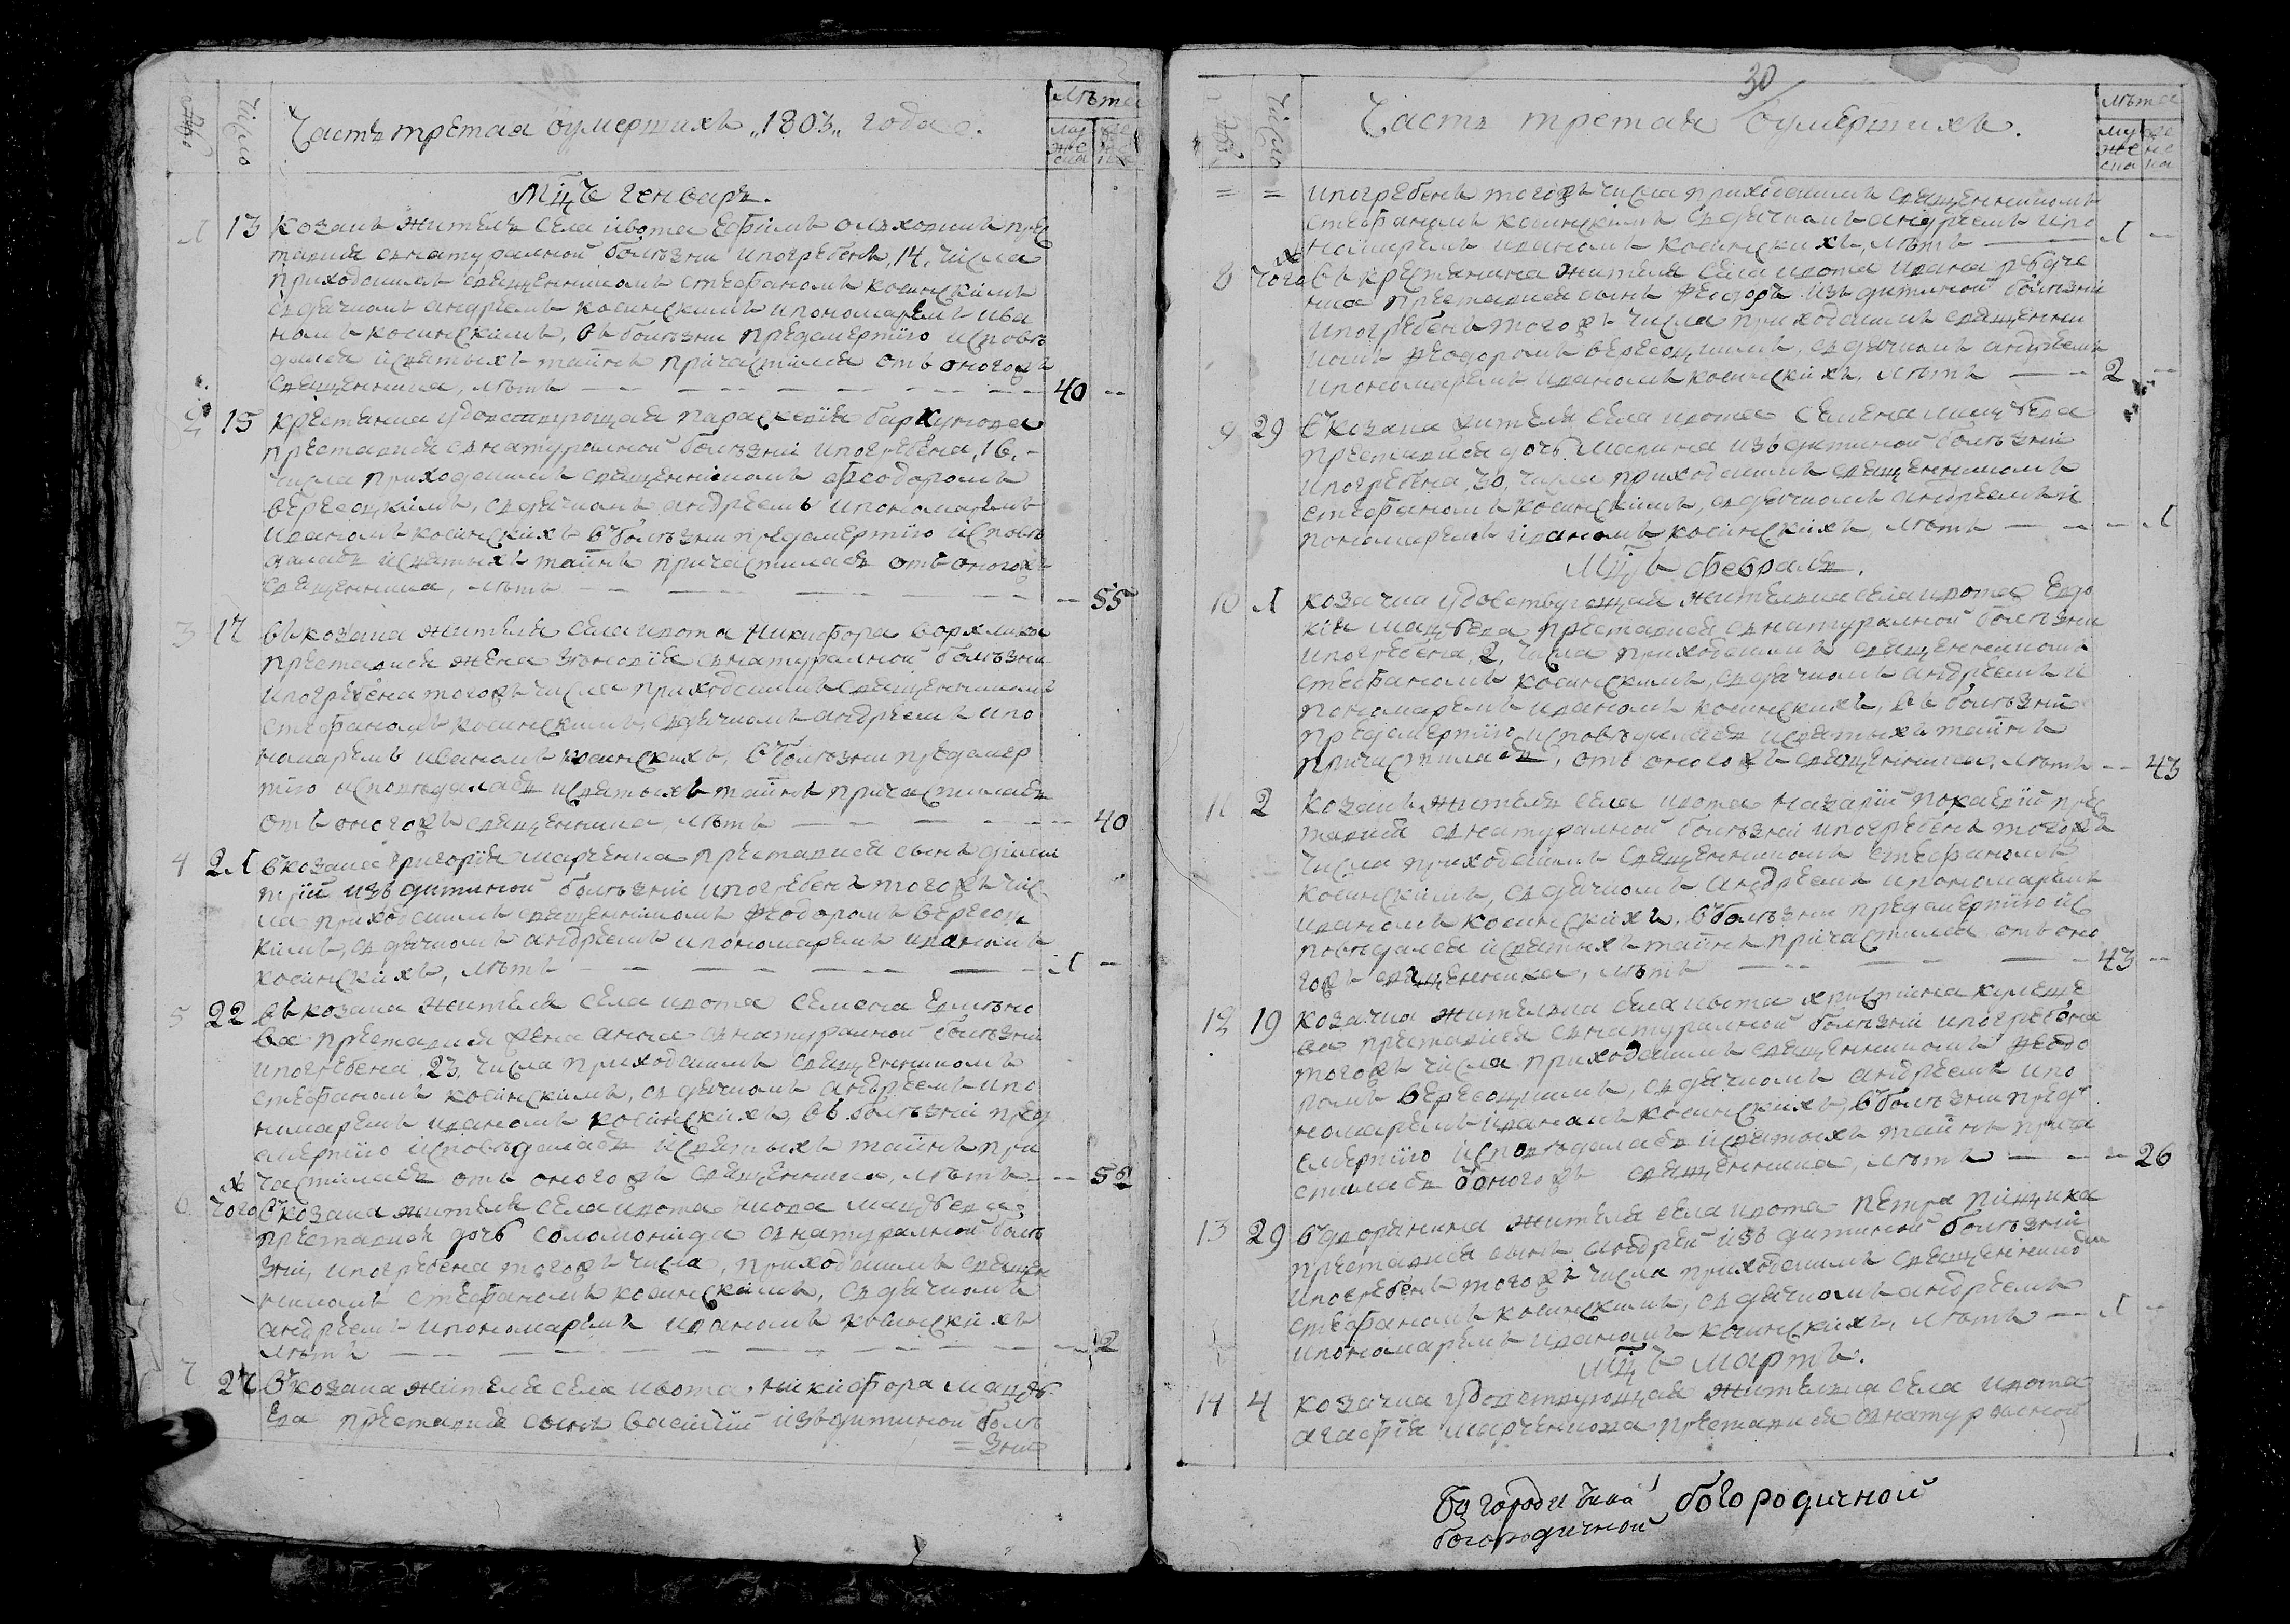 Число
Часть третая оумершихъ „1803„ года.
лѣта
муж
еска
же
нс
ка
Мц҃ъ генваръ.
1 13 козакъ житель села ивота Ефимъ ольховикъ прес
тавися снатуралной болѣзни ипогребенъ, 14, числа
приходскимъ священникомъ стефаномъ косинскимъ
сдячкомъ андреемъ косинскимъ ипономаремъ ива
номъ косинскимъ, въ болѣзни предсмертію исповѣ
дался исвятыхъ таинъ причастился отъ оногожъ
священника, лѣтъ — — — 40 --
2 15 крестянка удовствующая параскевія
преставися снатуралной болѣзни ипогребена, 16, -
числа приходскимъ священникомъ феодоромъ
вересоцкимъ, сдячкомъ андреемъ ипономаремъ
иваномъ косинскихъ вболѣзни предсмертію исповѣ
далась исвятыхъ таинъ причастилась отъ оногожъ
священника, лѣтъ — — — -- 55
3 17 въ козака жителя села ивота Никифора
преставися жена зѣновія снатуралной болѣзни
ипогребена тогожъ числа приходскимъ священникомъ
стефаномъ косинскимъ, сдячкомъ андреемъ ипо
номаремъ иваномъ косинскихъ, вболѣзни предсмер
тію исповѣдалась исвятыхъ таинъ причастилась
отъ оногожъ священника, лѣтъ — — — 40
4 21 вкозака григорія марченка преставися сынъ дими
трій изъ дитиной болѣзни ипогребенъ тогожъ чис
ла приходскимъ священникомъ феодоромъ вересоц
кимъ, сдячкомъ андреемъ ипономаремъ иваномъ
косинскихъ, лѣтъ — — — 1 --
5 22 въ козака жителя села ивота Семена
ва преставися жена анна снатуралной болѣзни
ипогребена, 23, числа приходскимъ священникомъ
стефаномъ косинскимъ, сдячкомъ андреемъ ипо
номаремъ иваномъ косинскихъ, въ болѣзни пред
смертію исповѣдалась исвятыхъ таинъ при
частилась отъ оногожъ священника, лѣтъ — --
6 того ж вкозака жителя села ивота
преставися дочь соломонида снатуралной болѣ
зни, ипогребена тогожъ числа, приходскимъ священ
никомъ стефаномъ косинскимъ, сдячкомъ
андреемъ ипономаремъ иваномъ косинскихъ
лѣтъ — — — -- 2
7 27 вкозака жителя села ивота, никифора
преставися сынъ василій изъ дитиной болѣ
= зни
30
Число
Часть третая оумершихъ.
лѣта
му
же
ска
же
нс
ка
= = ипогребенъ тогожъ числа приходскимъ священникомъ
стефаномъ косинскимъ сдячкомъ андреемъ ипо
номаремъ иваномъ косинскихъ, лѣтъ — 1 --
8 того ж въ крестянина жителя села ивота ивана
преставися сынъ феодоръ изъ дитиной болѣзни
ипогребенъ тогожъ числа приходскимъ священни
комъ феодоромъ вересоцкимъ, сдячкомъ андреемъ
ипономаремъ иваномъ косинскихъ, лѣтъ — 2 --
9 29 вкозака жителя села ивота Семена
преставися дочь изъ дитиной болѣзни
ипогребена, 30, числа приходскимъ священникомъ
стефаномъ косинскимъ, сдячкомъ андреемъ и
пономаремъ иваномъ косинскихъ, лѣтъ — -- 1
Мц҃ъ февраль.
10 1 козачка удовствующая жителка села ивота Евдо
кія преставися снатуралной болѣзни
ипогребена, 2, числа приходскимъ священникомъ
стефаномъ косинскимъ, сдячкомъ андреемъ и
пономаремъ иваномъ косинскихъ, въ болѣзни
предсмертію исповѣдалась исвятыхъ таинъ
причастилась, отъ оногожъ священника, лѣтъ -- 43
11 2 козакъ житель села ивота Назарій прес
тавися снатуралной болѣзни ипогребенъ тогожъ
числа приходскимъ священникомъ стефаномъ
косинскимъ, сдячкомъ андреемъ ипономаремъ
иваномъ косинскихъ, вболѣзни предсмертію ис
повѣдался исвятыхъ таинъ причастился отъ оно
гожъ священника, лѣтъ — — — 43 --
12 19 козачка жителка села ивота христина
преставися снатуралной болѣзни ипогребена
тогожъ числа приходскимъ священникомъ феодо
ромъ вересоцкимъ, сдячкомъ андреемъ ипо
номаремъ иваномъ косинскихъ, вболѣзни пред
смертію исповѣдалась исвятыхъ таинъ прича
стилась оногожъ священника, лѣтъ — -- 26
13 29 вдворянина жителя села ивота петра
преставися сынъ андрей изъ дитиной болѣзни
ипогребенъ тогожъ числа приходскимъ священником
стефаномъ косинскимъ, сдячкомъ андреемъ
ипономаремъ иваномъ косинскихъ, лѣтъ — 1 --
Мц҃ъ мартъ.
14 4 козачка удовствующая жителка села ивота
агафія марченкова преставися снатуралной
богородичной
богородичной